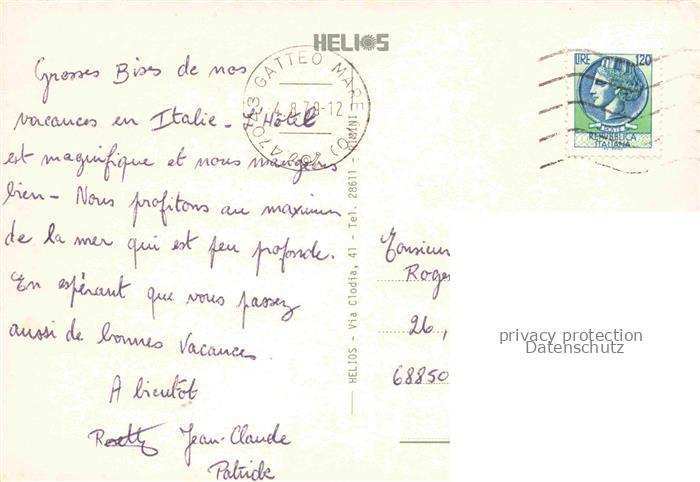 HELIOS
Grosses Bises de nos
vacances en Italie - L'Hotel
est magnifique et nous mangeons
bien - Nous profitons au maximum
de la mer qui est peu profonde.
En espérant que vous passez
aussi de bonnes Vacances.
A bientot
Rosetty Jean-Claude
Patrick
47043 GATTEO MARE (FO)
4.8.78-12
LIRE 120
REPVBBLICA
ITALIANA
HELIOS - Via Clodia, 41 - Tel. 28611 - RIMINI
Monsieur
Roger
26,
68850
privacy protection
Datenschutz